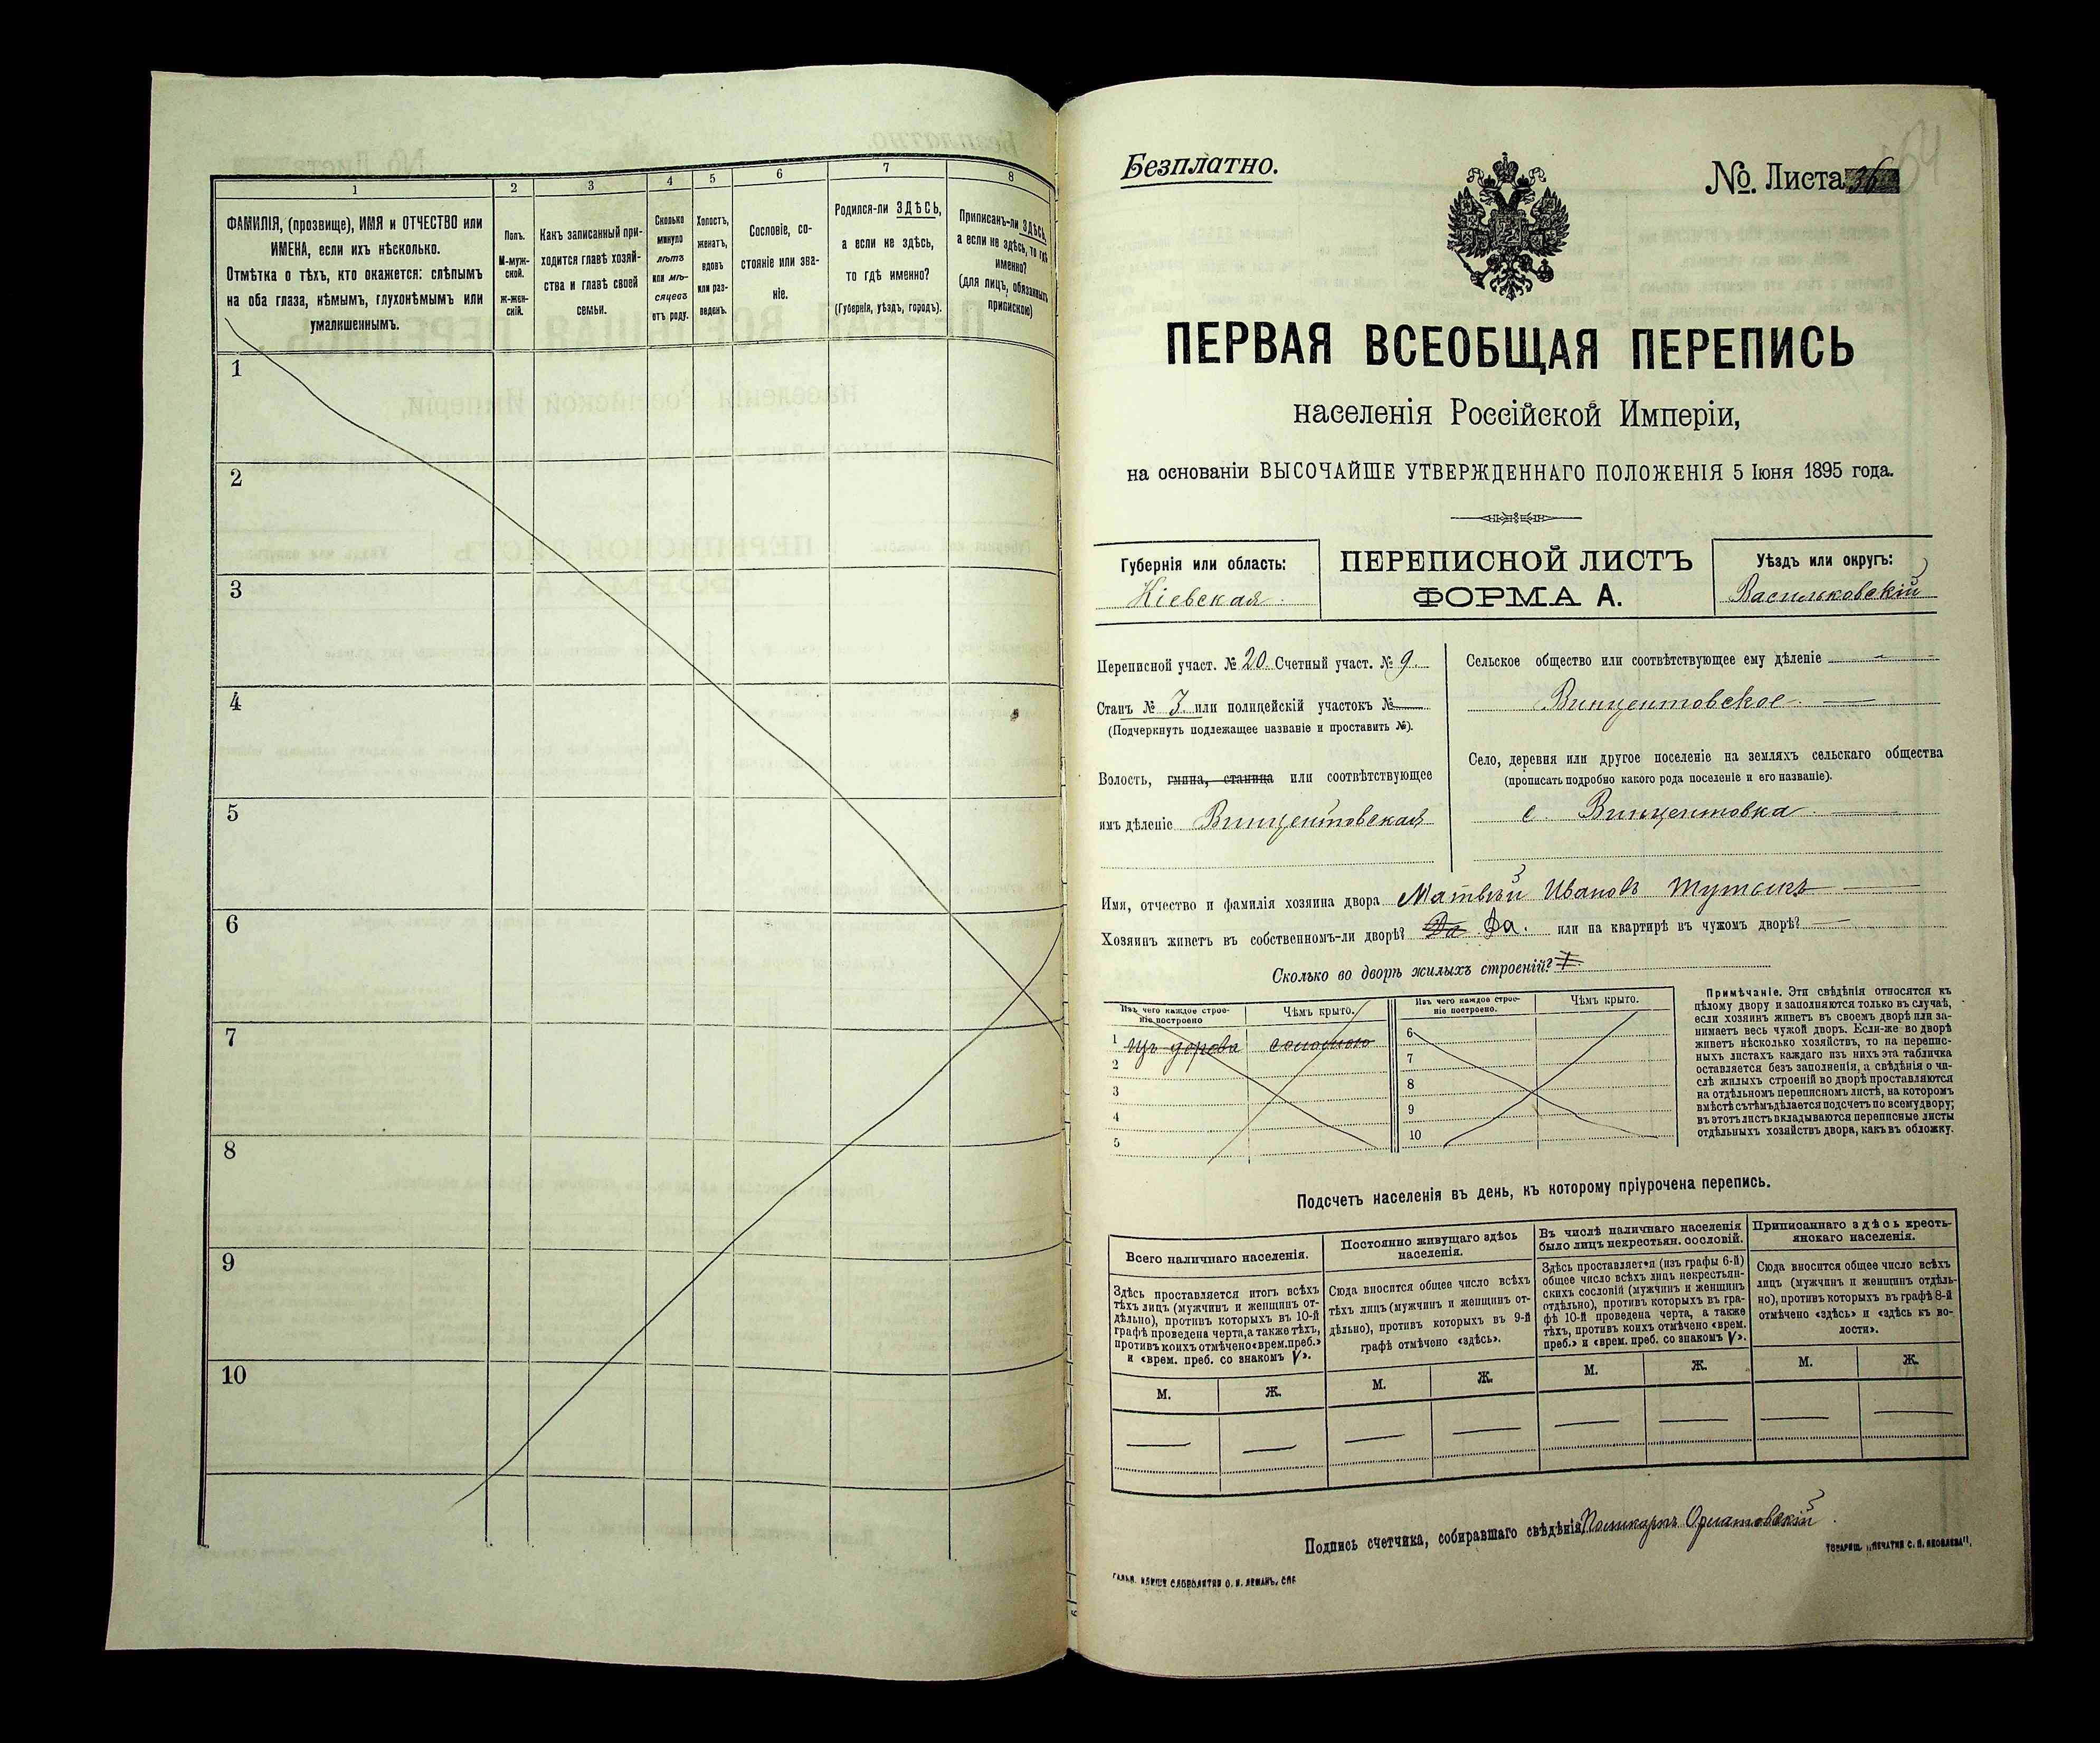 1 2 3 4 5 6 7 8
ФАМИЛІЯ, (прозвище), ИМЯ и ОТЧЕСТВО или
ИМЕНА, если ихъ нѣсколько.
Отмѣтка о тѣхъ, кто окажется: слѣпымъ
на оба глаза, нѣмымъ, глухонѣмымъ или
умалишеннымъ.
Полъ.
М-муж-
ской.
ж-жен-
скій.
Какъ записанный при-
ходится главѣ хозяй-
ства и главѣ своей
семьи.
Сколько
минуло
лѣтъ
или мѣ-
сяцевъ
отъ роду.
Холостъ,
женатъ,
вдовъ
или раз-
веденъ.
Сословіе, со-
стояніе или зва-
ніе.
Родился-ли ЗДѢСЬ,
а если не здѣсь,
то гдѣ именно?
(Губернія, уѣздъ, городъ).
Приписанъ-ли ЗДѢСЬ,
а если не здѣсь, то гдѣ
именно?
(для лицъ, обязанныхъ
припискою)
1
2
3
4
5
6
7
8
9
10
Безплатно.
№. Листа 36
ПЕРВАЯ ВСЕОБЩАЯ ПЕРЕПИСЬ
населенія Россійской Имперіи,
на основаніи ВЫСОЧАЙШЕ УТВЕРЖДЕННАГО ПОЛОЖЕНІЯ 5 Іюня 1895 года.
Губернія или область:
Кіевская
ПЕРЕПИСНОЙ ЛИСТЪ
ФОРМА А.
Уѣздъ или округъ:
Васильковскій
Переписной участ. № 20 Счетный участ. № 9.
Станъ № 3. или полицейскій участокъ №
(Подчеркнуть подлежащее названіе и проставить №).
Волость, гмина, станица или соотвѣтствующее
имъ дѣленіе Винцентовская
Сельское общество или соотвѣтствующее ему дѣленіе
Винцентовское
Село, деревня или другое поселеніе на земляхъ сельскаго общества
(прописать подробно какого рода поселеніе и его названіе).
с. Винцентовка
Имя, отчество и фамилія хозяина двора Матвѣй Ивановъ
Хозяинъ живетъ въ собственномъ-ли дворѣ? Да Да. или на квартирѣ въ чужомъ дворѣ?
Сколько во дворѣ жилыхъ строеній? 1
Изъ чего каждое строе-
ніе построено
Чѣмъ крыто.
Изъ чего каждое строе-
ніе построено.
Чѣмъ крыто.
1 изъ дерева соломою
2
3
4
5
6
7
8
9
10
Примѣчаніе. Эти свѣдѣнія относятся къ
цѣлому двору и заполняются только въ случаѣ,
если хозяинъ живетъ въ своемъ дворѣ или за-
нимаетъ весь чужой дворъ. Если-же во дворѣ
живетъ нѣсколько хозяйствъ, то на перепис-
ныхъ листахъ каждаго изъ нихъ эта табличка
оставляется безъ заполненія, а свѣдѣнія о чи-
слѣ жилыхъ строеній во дворѣ проставляются
на отдѣльномъ переписномъ листѣ, на которомъ
вмѣстѣ съ тѣмъ дѣлается подсчетъ по всему двору;
въ этотъ листъ вкладываются переписные листы
отдѣльныхъ хозяйствъ двора, какъ въ обложку.
Подсчетъ населенія въ день, къ которому пріурочена перепись.
Всего наличнаго населенія.
Постоянно живущаго здѣсь
населенія.
Въ числѣ наличнаго населенія
было лицъ некрестьян. сословій.
Приписаннаго здѣсь кресть-
янскаго населенія.
Здѣсь проставляется итогъ всѣхъ
тѣхъ лицъ (мужчинъ и женщинъ от-
дѣльно), противъ которыхъ въ 10-й
графѣ проведена черта, а также тѣхъ,
противъ коихъ отмѣчено «врем. преб.»
и «врем. преб. со знакомъ V».
Сюда вносится общее число всѣхъ
тѣхъ лицъ (мужчинъ и женщинъ от-
дѣльно), противъ которыхъ въ 9-й
графѣ отмѣчено «здѣсь».
Здѣсь проставляется (изъ графы 6-й)
общее число всѣхъ лицъ некрестьян-
скихъ сословій (мужчинъ и женщинъ
отдѣльно), противъ которыхъ въ гра-
фѣ 10-й проведена черта, а также
тѣхъ, противъ коихъ отмѣчено «врем.
преб.» и «врем. преб. со знакомъ V».
Сюда вносится общее число всѣхъ
лицъ (мужчинъ и женщинъ отдѣль-
но), противъ которыхъ въ графѣ 8-й
отмѣчено «здѣсь» и «здѣсь къ во-
лости».
М. Ж. М. Ж. М. Ж. М. Ж.
Подпись счетчика, собиравшаго свѣдѣнія Поликарпъ Орнатовскій
ТОВАРИЩ. „ПЕЧАТНЯ С. П. ЯКОВЛЕВА".
ГАЛЬВ. КЛИШЕ СЛОВОЛИТНИ О. И. ЛЕМАНЪ, СПБ